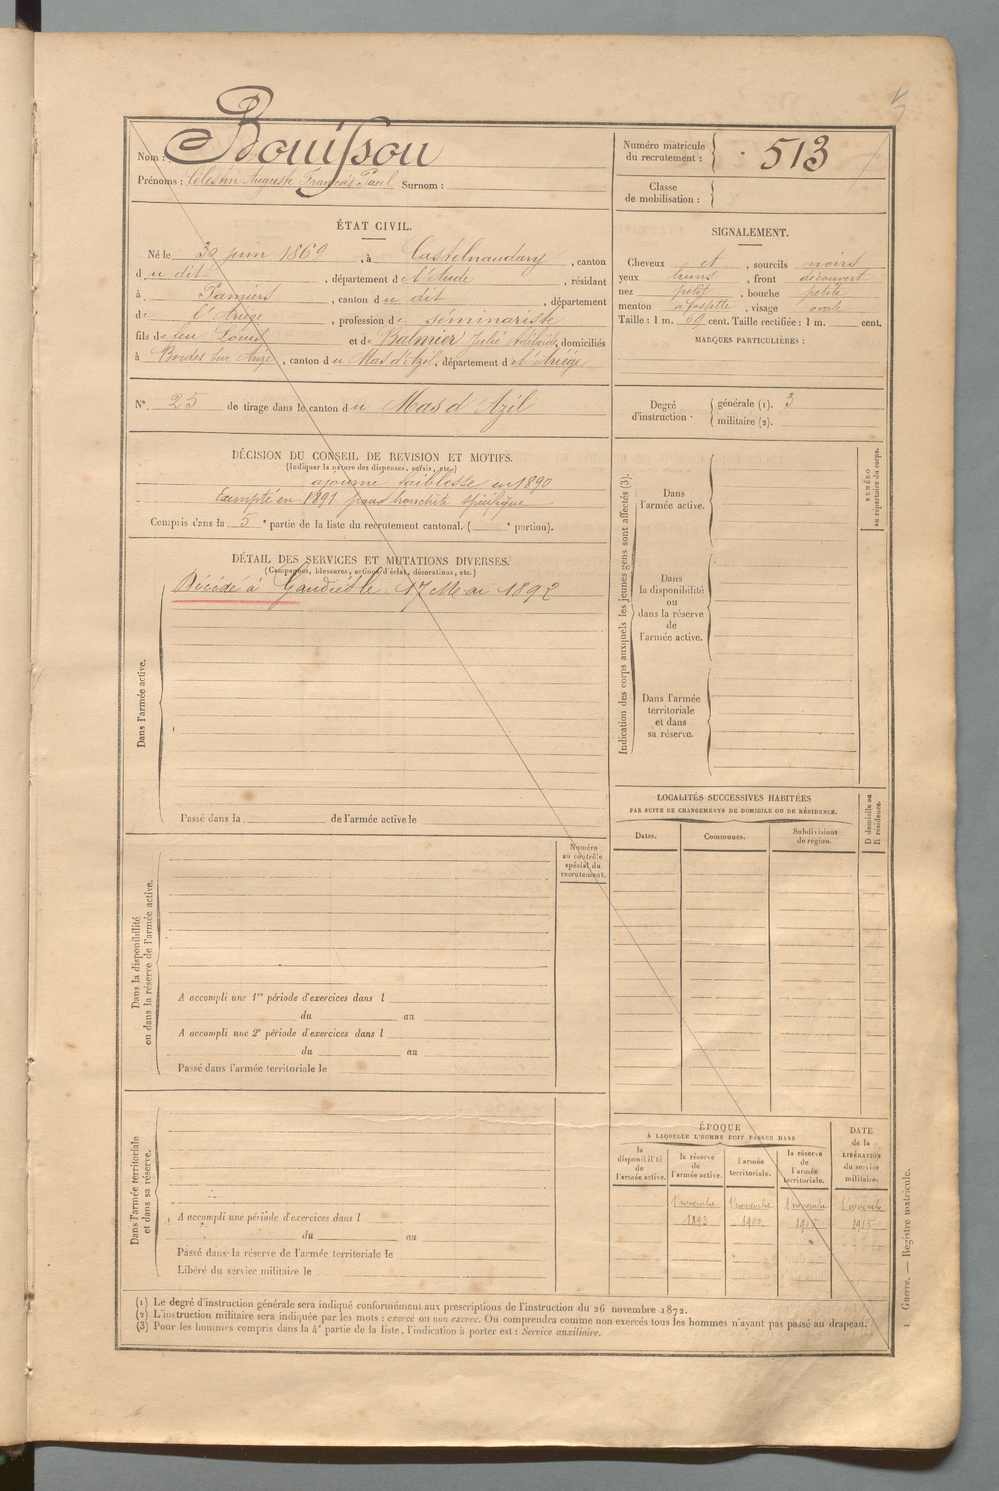 Nom : Bouisson
Prénoms : Célestin Auguste François Paul Surnom :
Numéro matricule du recrutement : 513
Classe de mobilisation :
ÉTAT CIVIL.
Né le 30 juin 1869, à Castelnaudary, canton
du dit, département de l'Aude, résidant
à Pamiers, canton du dit, département
de l'Ariège, profession de séminariste
fils de feu Louis et de Balmier Julie Adélaïde, domiciliés
à Bordes sur Arize, canton du Mas d'Azil, département de l'Ariège.
SIGNALEMENT.
Cheveux et, sourcils noirs
yeux bruns, front découvert
nez petit, bouche petite
menton à fossette, visage ovale
Taille : 1 m. 60 cent. Taille rectifiée : 1 m. cent.
MARQUES PARTICULIÈRES :
N° 25 de tirage dans le canton du Mas d'Azil
Degré d'instruction
générale (1). 3
militaire (2).
DÉCISION DU CONSEIL DE REVISION ET MOTIFS.
(Indiquer la nature des dispenses, sursis, etc.)
ajourné faiblesse en 1890
Exempté en 1891 pour bronchite spécifique
Compris dans la 5e partie de la liste du recrutement cantonal. ( e portion).
DÉTAIL DES SERVICES ET MUTATIONS DIVERSES.
(Campagnes, blessures, actions d'éclat, décorations, etc.)
Décédé à Gaudiès le 17 Mai 1892
Dans l'armée active.
Passé dans la de l'armée active le
Indication des corps auxquels les jeunes gens sont affectés (3).
Dans l'armée active.
Dans la disponibilité ou dans la réserve de l'armée active.
Dans l'armée territoriale et dans sa réserve.
NUMÉRO au répertoire du corps.
LOCALITÉS SUCCESSIVES HABITÉES
PAR SUITE DE CHANGEMENTS DE DOMICILE OU DE RÉSIDENCE.
Dates. Communes. Subdivisions de région.
D domicile ou R résidence.
Numéro au contrôle spécial du recrutement.
Dans la disponibilité ou dans la réserve de l'armée active.
A accompli une 1re période d'exercices dans l
du au
A accompli une 2e période d'exercices dans l
du au
Passé dans l'armée territoriale le
Dans l'armée territoriale et dans sa réserve.
A accompli une période d'exercices dans l
du au
Passé dans la réserve de l'armée territoriale le
Libéré du service militaire le
ÉPOQUE
À LAQUELLE L'HOMME DOIT PASSER DANS
la disponibilité de l'armée active.
la réserve de l'armée active.
l'armée territoriale.
la réserve de l'armée territoriale.
DATE de la LIBÉRATION du service militaire.
1 novembre 1 novembre 1 novembre 1 novembre
1893 1900 1915
(1) Le degré d'instruction générale sera indiqué conformément aux prescriptions de l'instruction du 26 novembre 1872.
(2) L'instruction militaire sera indiquée par les mots : exercé ou non exercé. On comprendra comme non exercés tous les hommes n'ayant pas passé au drapeau.
(3) Pour les hommes compris dans la 4e partie de la liste, l'indication à porter est : Service auxiliaire.
1 Guerre. — Registre matricule.